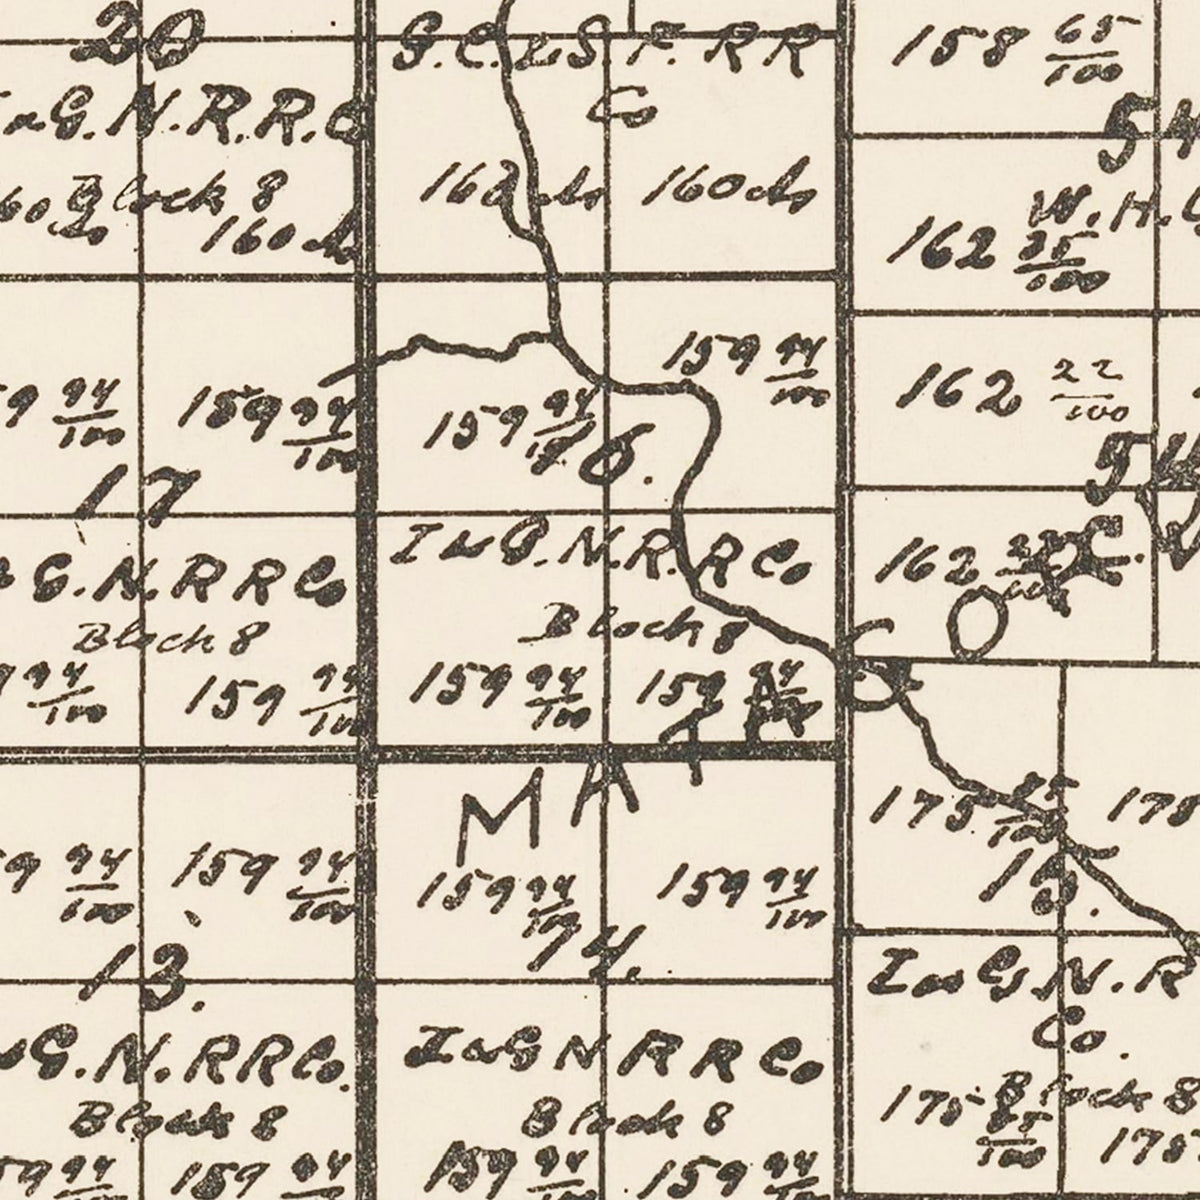 20
G.N.R.R.
Block 8
160
G.C.&S.F. R R
Co
162
160 As
158 65/100
54
W.H.
162 25/100
94/100
159 94/100
17
G.N.R R Co
Block 8
94/100
159 94/100
159 94/100
159 94/100
16.
I & G.N.R.R Co
Block 8
159 94/100
159 94/100
162 22/100
54
162
O
M A T A
94/100
159 94/100
13.
G.N.RRCo.
Block 8
94/100
159 94/100
159 94/100
159 94/100
14.
I & G N R R Co
Block 8
159 94/100
159 94/100
175 85/100
175
15.
I & G N. R
Co.
Block 8
175 85/100
175